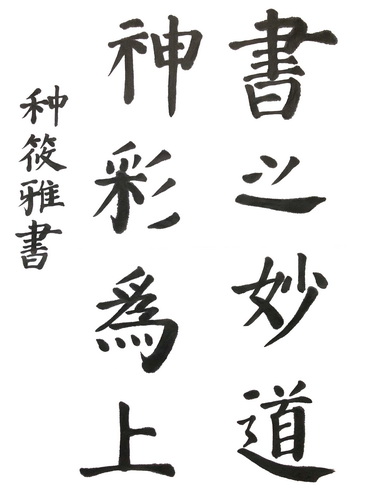 書之妙道
神彩為上
种筱雅書